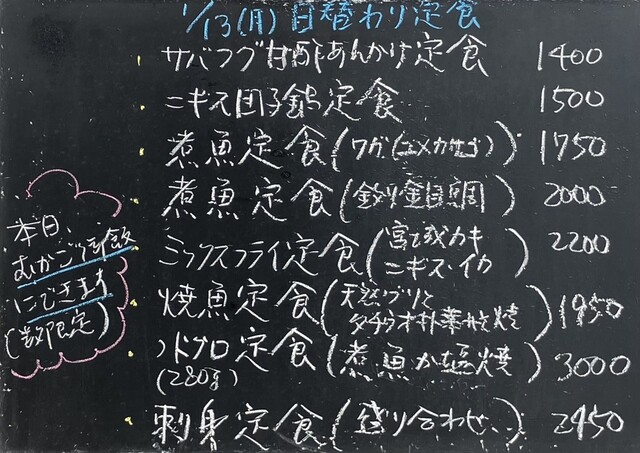 1/13(月)日替わり定食
サバフグ甘酢あんかけ定食 1400
ニギス団子鍋定食 1500
煮魚定食(ワガ(ユメカサゴ)) 1750
煮魚定食(釣り金目鯛) 2000
ミックスフライ定食(宮城カキ
ニギス・イカ) 2200
焼魚定食(天然ブリと
タチウオ朴葉焼) 1950
ノドグロ定食(煮魚か塩焼) 3000
(280g)
刺身定食(盛り合わせ) 2450
本日、
むかご御飯
にできます
(数限定)